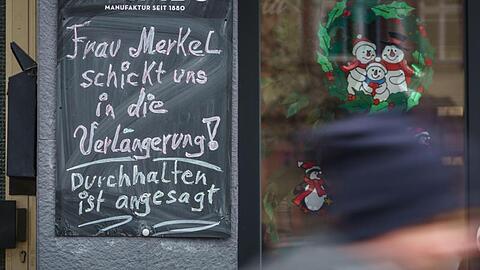 MANUFAKTUR SEIT 1880
Frau Merkel
schickt uns
in die
Verlängerung!
Durchhalten
ist angesagt